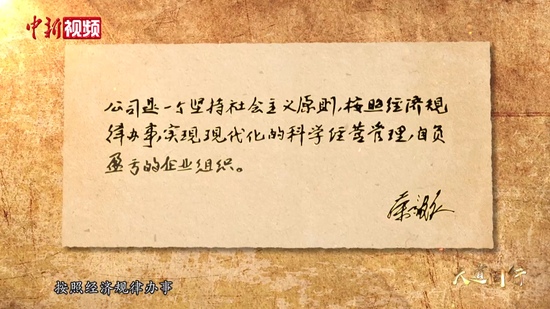 中新视频
公司是一个坚持社会主义原则,按照经济规
律办事,实现现代化的科学经营管理,自负
盈亏的企业组织。
荣毅仁
按照经济规律办事